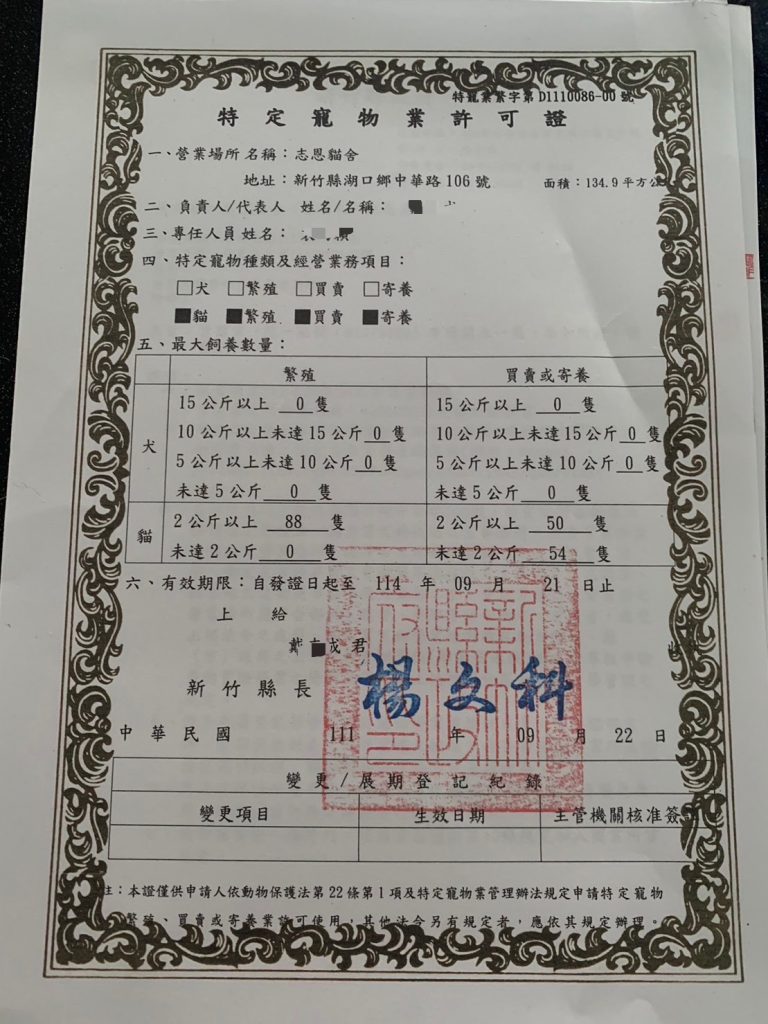 特寵業繁字第D1110086-00號
特定寵物業許可證
一、營業場所 名稱：志恩貓舍
地址：新竹縣湖口鄉中華路106號 面積：134.9平方公
二、負責人/代表人 姓名/名稱：
三、專任人員 姓名：
四、特定寵物種類及經營業務項目：
□犬 □繁殖 □買賣 □寄養
■貓 ■繁殖 ■買賣 ■寄養
五、最大飼養數量：
繁殖 買賣或寄養
犬
15公斤以上 0 隻 15公斤以上 0 隻
10公斤以上未達15公斤 0 隻 10公斤以上未達15公斤 0 隻
5公斤以上未達10公斤 0 隻 5公斤以上未達10公斤 0 隻
未達5公斤 0 隻 未達5公斤 0 隻
貓
2公斤以上 88 隻 2公斤以上 50 隻
未達2公斤 0 隻 未達2公斤 54 隻
六、有效期限：自發證日起至 114 年 09 月 21 日止
上 給
戴 君
新竹縣長 楊文科
中華民國 111 年 09 月 22 日
變更/展期登記紀錄
變更項目 生效日期 主管機關核准簽
註：本證僅供申請人依動物保護法第22條第1項及特定寵物業管理辦法規定申請特定寵物
繁殖、買賣或寄養業許可使用，其他法令另有規定者，應依其規定辦理。